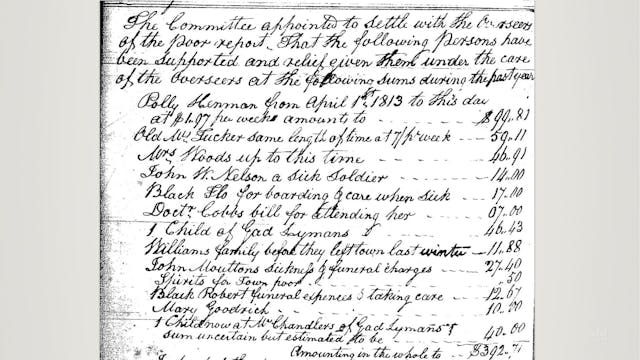 The Committee appointed to settle with the Overseers
of the Poor report. That the following Persons have
been supported and relief given them under the care
of the Overseers at the following sums during the past year
Polly Henman from April 1st. 1813 to this day
at $1.97 per week amounts to - - - $99.81
Old Mrs. Tucker same length of time at 7/ pr week - - 59.11
Mrs Woods up to this time - - - - 46.91
John W. Nelson a sick Soldier - - - - 14.00
Black Flo for boarding & care when sick - - - 17.00
Doctr. Cobbs bill for attending her - - - 07.00
1 Child of Gad Lymans - - - - - 46.43
Williams family before they left town last winter - 11.88
John Mouttons sickness & funeral charges - - - 27.40
Spirits for Town poor - - - - .50
Black Robert funeral expences & taking care - - 12.67
Mary Goodrich - - - - - - 10.00
1 Child now at Mr Chandlers of Gad Lymans
sum uncertain but estimated to be - - - 40.00
Amounting in the whole to - $392.71